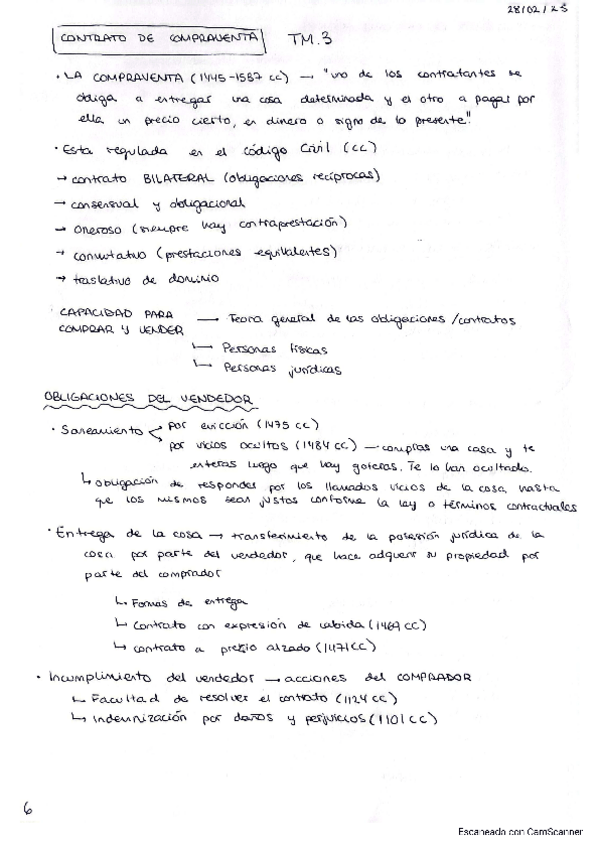 28/02/23
CONTRATO DE COMPRAVENTA TM.3
· LA COMPRAVENTA (1445-1537 CC) → "uno de los contratantes se
obliga a entregar una cosa determinada y el otro a pagar por
ella un precio cierto, en dinero o signo de lo presente".
· Esta regulada en el código Civil (CC)
→ contrato BILATERAL (obligaciones recíprocas)
→ consensual y obligacional
→ Oneroso (siempre hay contraprestación)
→ conmutativo (prestaciones equivalentes)
→ traslativo de dominio
CAPACIDAD PARA
COMPRAR Y VENDER → Teoría general de las obligaciones/contratos
↳ Personas físicas
↳ Personas jurídicas
OBLIGACIONES DEL VENDEDOR
· Saneamiento por evicción (1475 CC)
por vicios ocultos (1484 CC) → compras una casa y te
enteras luego que hay goteras. Te lo han ocultado.
↳ obligación de responder por los llamados vicios de la cosa, hasta
que los mismos sean justos conforme la ley o términos contractuales
· Entrega de la cosa → transferimiento de la potesión jurídica de la
cosa por parte del vendedor, que hace adquerir su propiedad por
parte del comprador
↳ Formas de entrega
↳ Contrato con expresión de cabida (1469 CC)
↳ contrato a prezio alzado (1471CC)
· Incumplimiento del vendedor → acciones del COMPRADOR
↳ Facultad de resolver el contrato (1124 CC)
↳ Indemnización por daños y perjuicios (1101 CC)
6
Escaneado con CamScanner